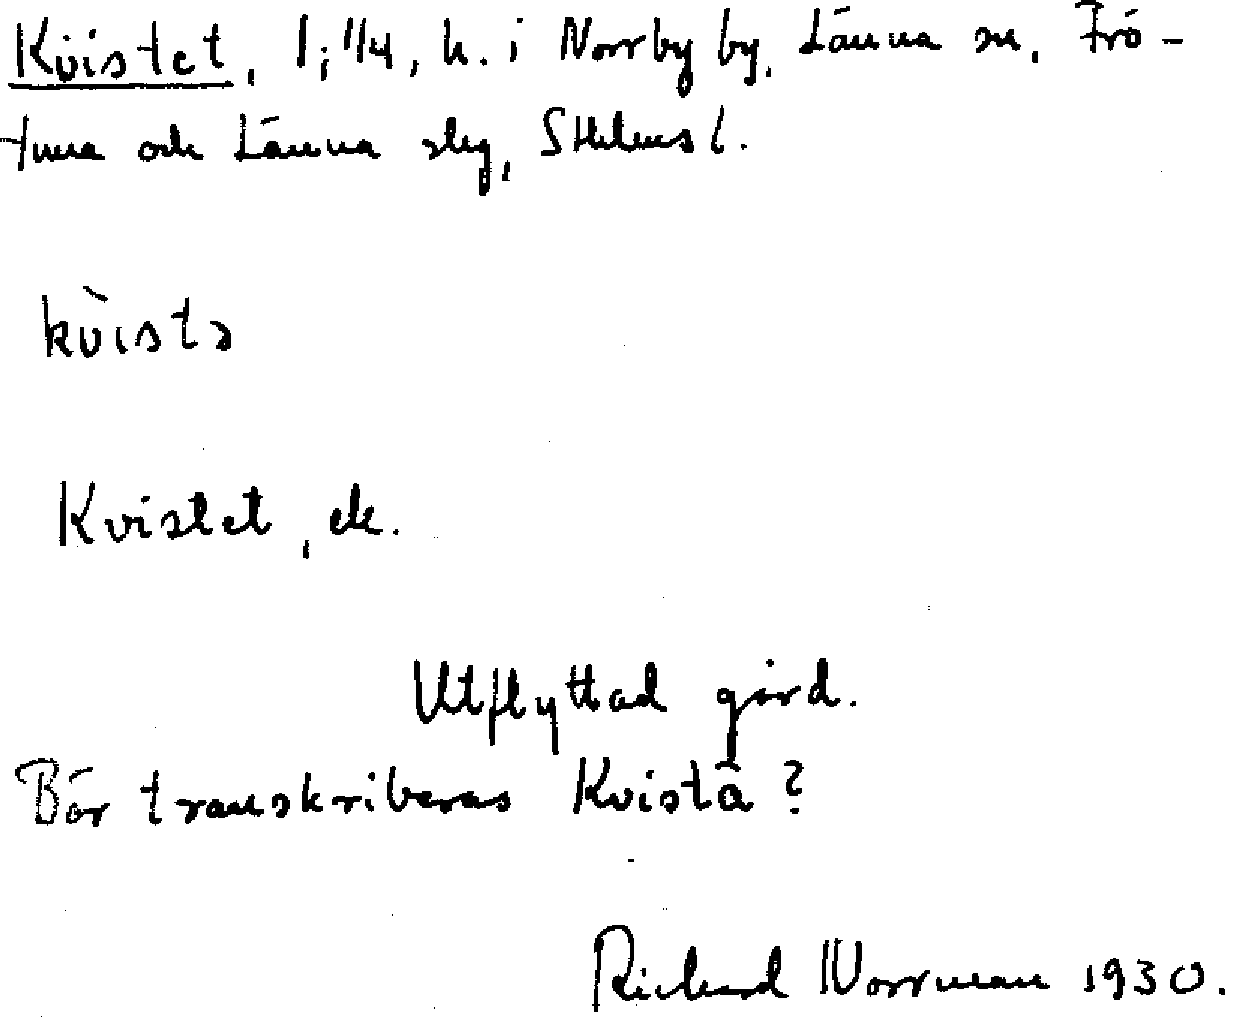 Kvistet, 1; 1/4, h. i Norrby by, Länna sn, Frö-
tuna och Länna slg, Sthlms l.
kv̀istə
Kvistet, ek.
Utflyttad gård.
Bör transkriberas Kvistä?
Richard Norrman 1930.